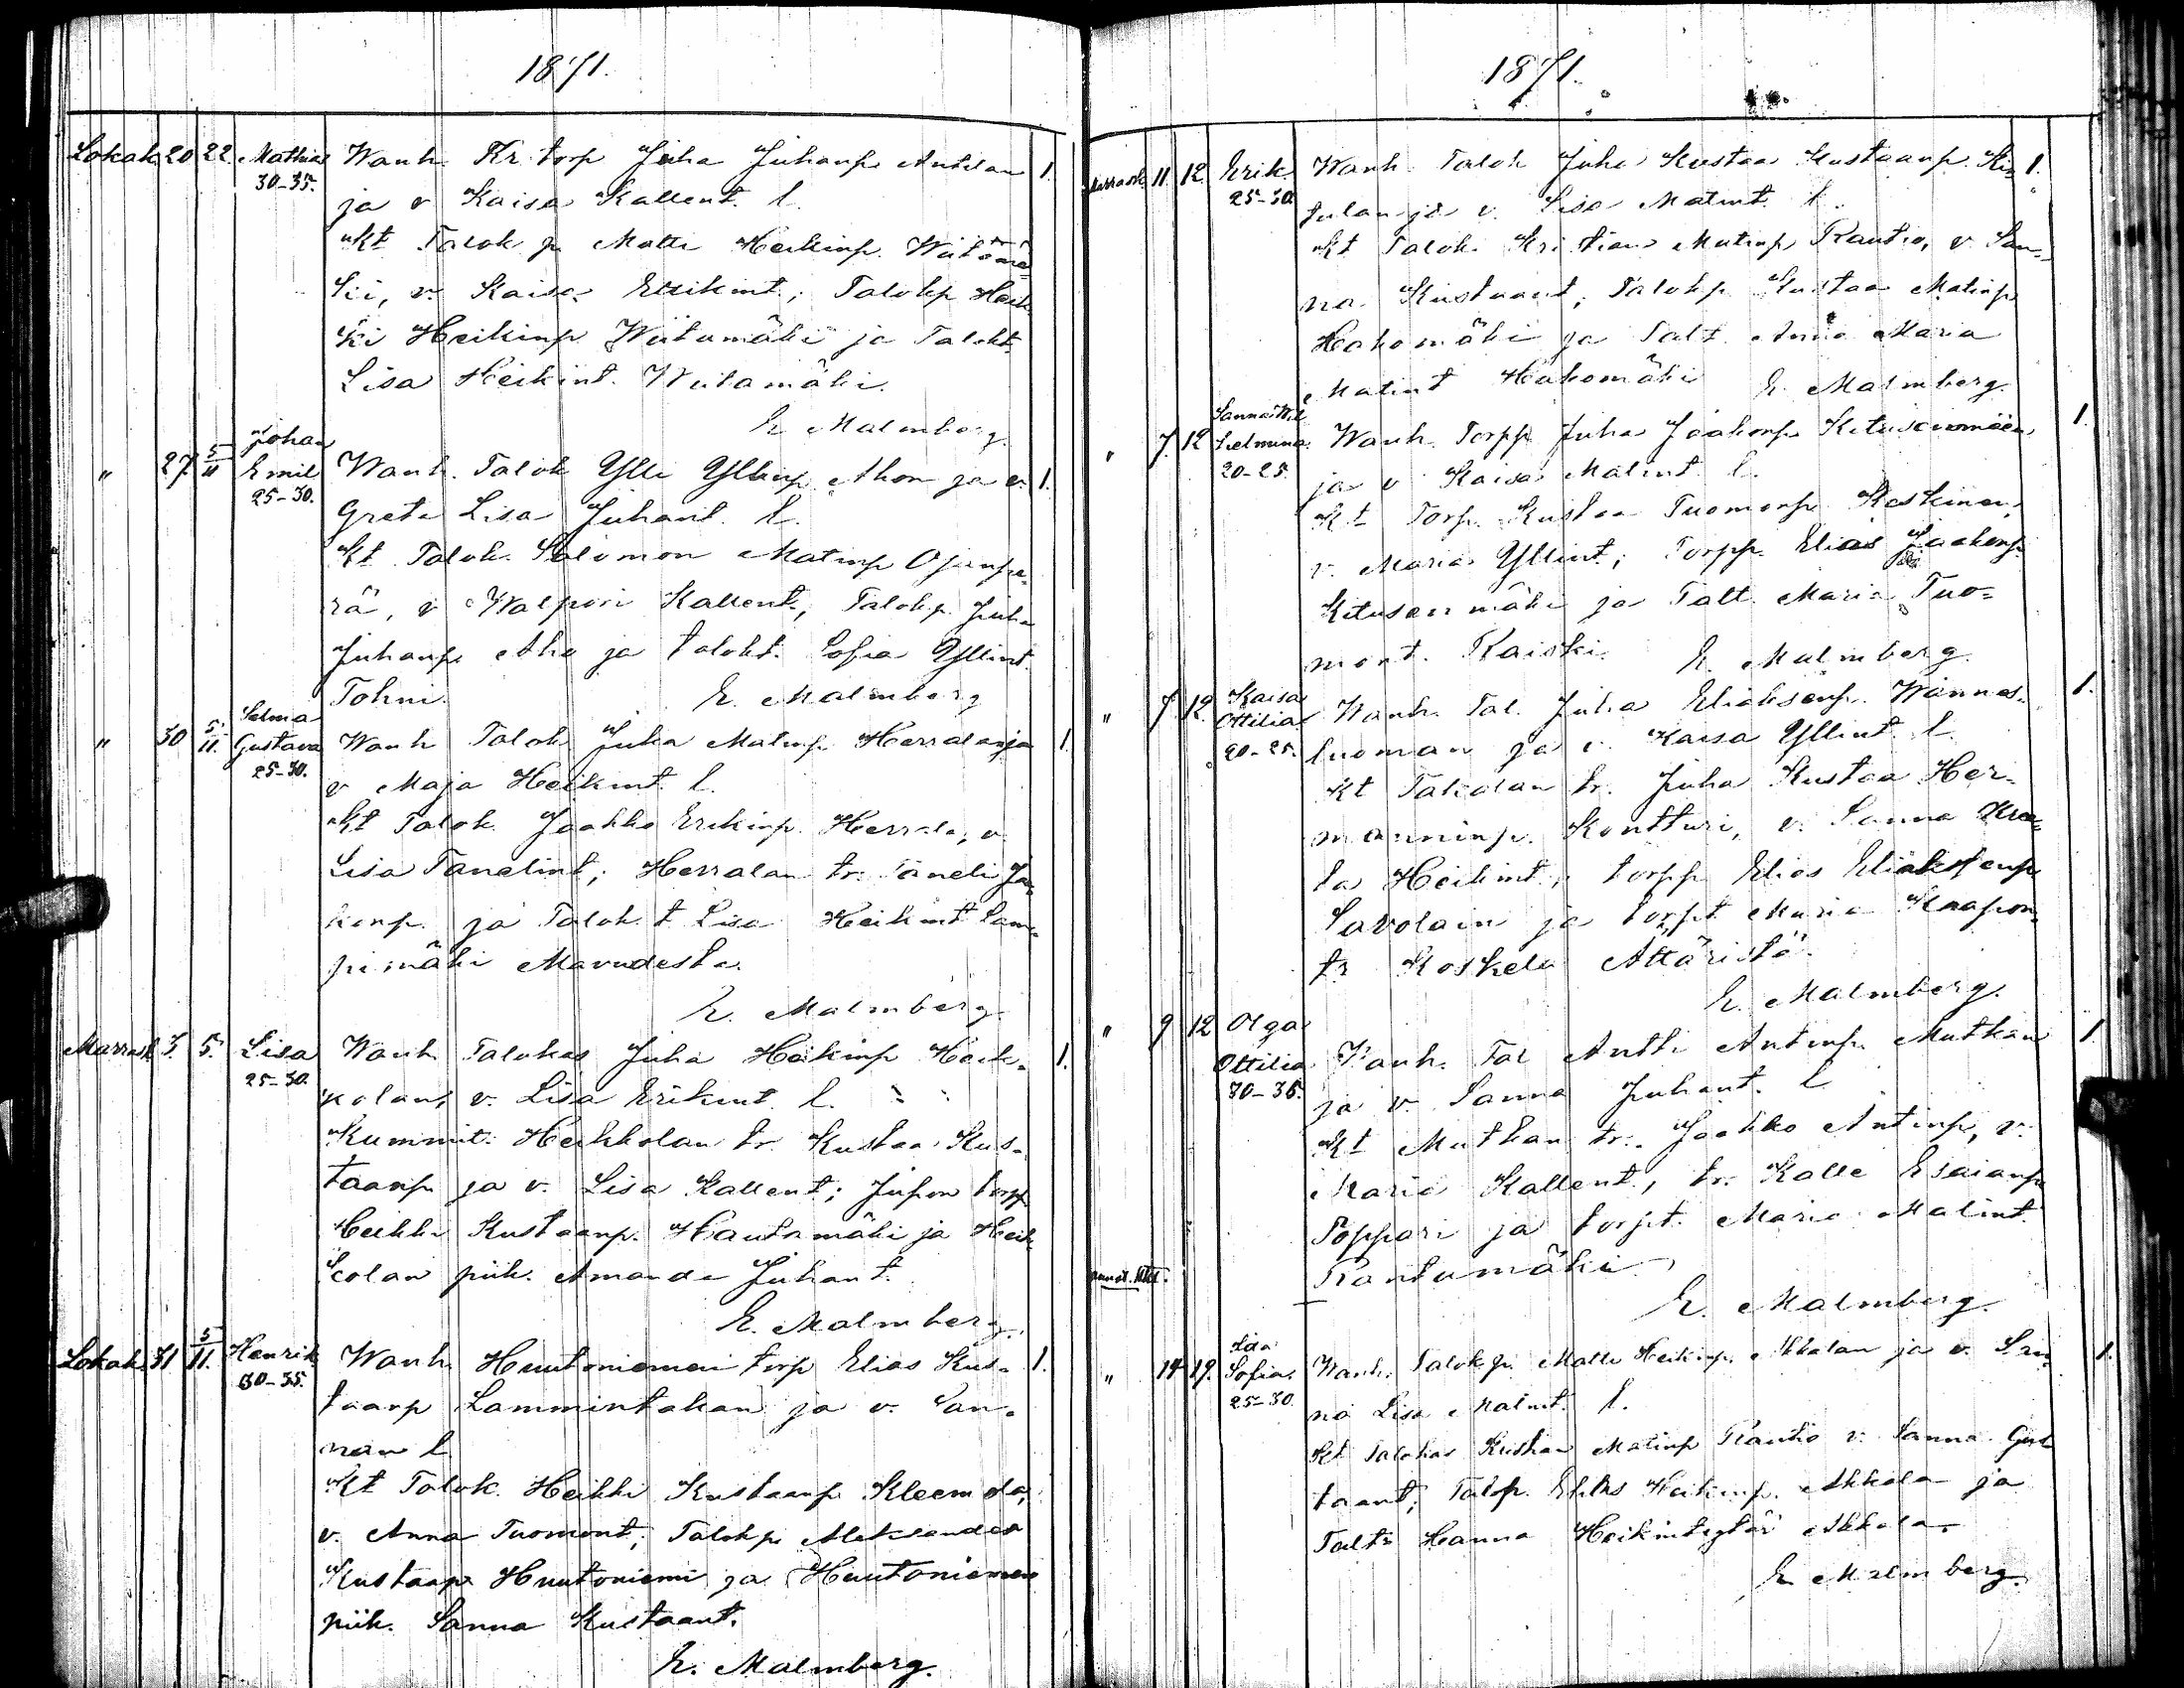 1871.
Lokak. 20 22. Mathias Wanh. Kr. torp Juha Juhanp. Anttilan 1.
30-35. ja v Kaisa Kallent. l.
Kt Talok p. Matti Heikinp. Wiitamä-
ki, v. Kaisa Erikint.; Talokp Heik
ki Heikinp Wiitamäki ja Talokt.
Lisa Heikint. Wiitamäki.
E. Malmberg.
" 27 5/11 Johan Emil Wanh. Talok Ylli Yllinp. Ahon ja v. 1.
25-30. Greta Lisa Juhant. l.
Kt Talok. Salomon Matinp Ojanpe-
rä, v Walpori Kallent., Talokp. Juha
Juhanp. Aho ja talokt. Sofia Yllint.
Tohni. E. Malmberg
" 30 5/11. Selma Gustava Wanh Talok Juha Matinp. Herralan ja 1.
25-30. v Maja Heikint. l.
Kt Talok. Jaakko Erikinp. Herrala, v.
Lisa Tanelint; Herralan tr. Taneli Ja-
konp. ja Talok. t Lisa Heikint Lam-
pimäki Alavudesta.
E. Malmberg.
Marrask. 3. 5. Lisa Wanh Talokas Juha Heikinp Heik- 1.
25-30. kolan, v. Lisa Erikint. l.
Kummit: Heikkolan tr. Kustaa Kus-
taanp ja v. Lisa Kallent; Jupon torp
Heikki Kustaanp. Hautamäki ja Heik
kolan piik. Amanda Juhant.
E. Malmberg.
Lokak. 31 5/11. Henrik Wanh. Huutoniemen torp Elias Kus- 1.
30-35. taanp Lammintakan ja v. San-
nan l.
Kt Talok. Heikki Kustaanp Kleemola,
v. Anna Tuomont; Talokp. Aleksander
Kustaanp. Huutoniemi ja Huutoniemen
piik. Sanna Kustaant.
E. Malmberg.
1871.
Marrask 11. 12. Erik Wanh. Talok Juha Kustaa Kustaanp. 1.
25-30. tulan ja v. Lisa Matint. l.
Kt Talok. Kristian Matinp Rautio, v. San-
na Kustaant; Talokp. Kustaa Matinp
Hakomäki ja Talt. Anna Maria
Matint Hakomäki E. Malmberg.
" 7. 12 Wanh. Torpp. Juha Jaakonp. Kitusenmäen 1.
20-25. ja v Kaisa Matint l.
Kt Torp. Kustaa Tuomonp. Keskinen,
v. Maria Yllint; Torpp. Elias Jaakonp.
Kitusenmäki ja Talt. Maria Tuo-
mont. Raiski. E. Malmberg.
" 7. 12. Kaisa Ottilia Wanh. Tal. Juha Eliaksenp. Wännäs- 1.
20-25. luoman ja v. Kaisa Yllint l.
Kt Takalan tr. Juha Kustaa Her-
manninp. Kontturi, v. Sanna
ta Heikint., torpp Elias Eliaksenp
Savolain ja torpt Maria Kaapon-
tr Koskela Ätsäristä.
E. Malmberg.
" 9 12 Olga Ottilia Wanh. Tal Antti Antinp. Mutkan 1.
30-35. ja v. Sanna Juhant. l
Kt Mutkan tr. Jaakko Antinp, v.
Maria Kallent, tr. Kalle Esaianp
Poppari ja torpt. Maria Matint.
Rantamäki.
E. Malmberg.
" 14 19. Ida Sofia. Wanh. Talokp. Matti Heikinp. Akkalan ja v. San- 1.
25-30. na Lisa Matint. l.
Kt Talokas Kristian Matinp Rautio v. Sanna Gus
taant; Talop. Elias Heikinp. Akkala ja
Taltr Hanna Heikintytär Akkala.
E. Malmberg.